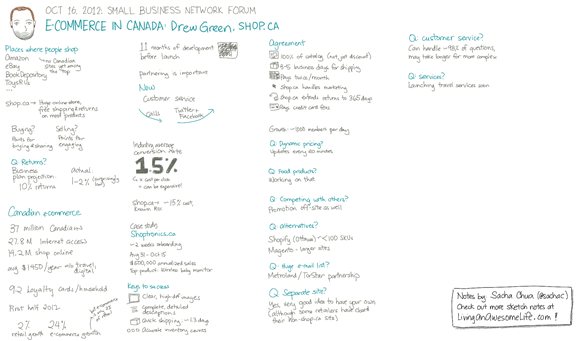 OCT 16, 2012: SMALL BUSINESS NETWORK FORUM
E-COMMERCE IN CANADA: Drew Green, SHOP.CA
Places where people shop
Amazon
eBay
Book Depository
ToysRUs
...
no Canadian
sites getting among
the top
shop.ca → Huge online store,
free shipping & returns
on most products
Buying?
Points for
buying & sharing
Selling?
Points for
engaging
Q: Returns?
Business
plan projection
10% returns
actual
1-2% (surprisingly
low)
Canadian ecommerce
37 million Canadians
27.8 M Internet access
14.2 M shop online
avg $1450/year
travel,
digital
9.2 Loyalty cards/household
First half 2012
2%
retail growth
24%
ecommerce growth
11 months of development
before launch
partnering is important
Now
Customer service
calls
Twitter +
Facebook
Industry average
conversion rates
1.5%
shop.ca → ~15% cost,
known ROI
Case study
Shoptronics.ca
~2 weeks onboarding
Aug 31 - Oct 15
$600,000 annualized sales
Top product: wireless baby monitor
Keys to success
Clear, high-def images
Complete, detailed
descriptions
Quick shipping, ~<3 days
Accurate inventory counts
Agreement
100% of catalog (not yet discount)
3-5 business days for shipping
Pays twice/month
shop.ca handles marketing
shop.ca extends returns to 365 days
Pays credit card fees
Growth: ~1000 members per day
Q: Dynamic pricing?
Updates every 20 minutes
Q: Food products?
Working on that
Q: Competing with others?
Promotion off-site as well
Q: Alternatives?
Shopify (Ottawa) ~<100 SKUs
Magento - larger sites
Q: Huge e-mail list?
Metroland/TorStar partnership
Q: Separate site?
Yes, very good idea to have your own
(although some retailers have closed
their non-shop.ca sites)
Q: customer service?
Can handle ~98% of questions,
may take longer for more complex
Q: services?
Launching travel services soon
Notes by Sacha Chua (@sachac)
Check out more sketch notes at
LivingAnAwesomeLife.com!